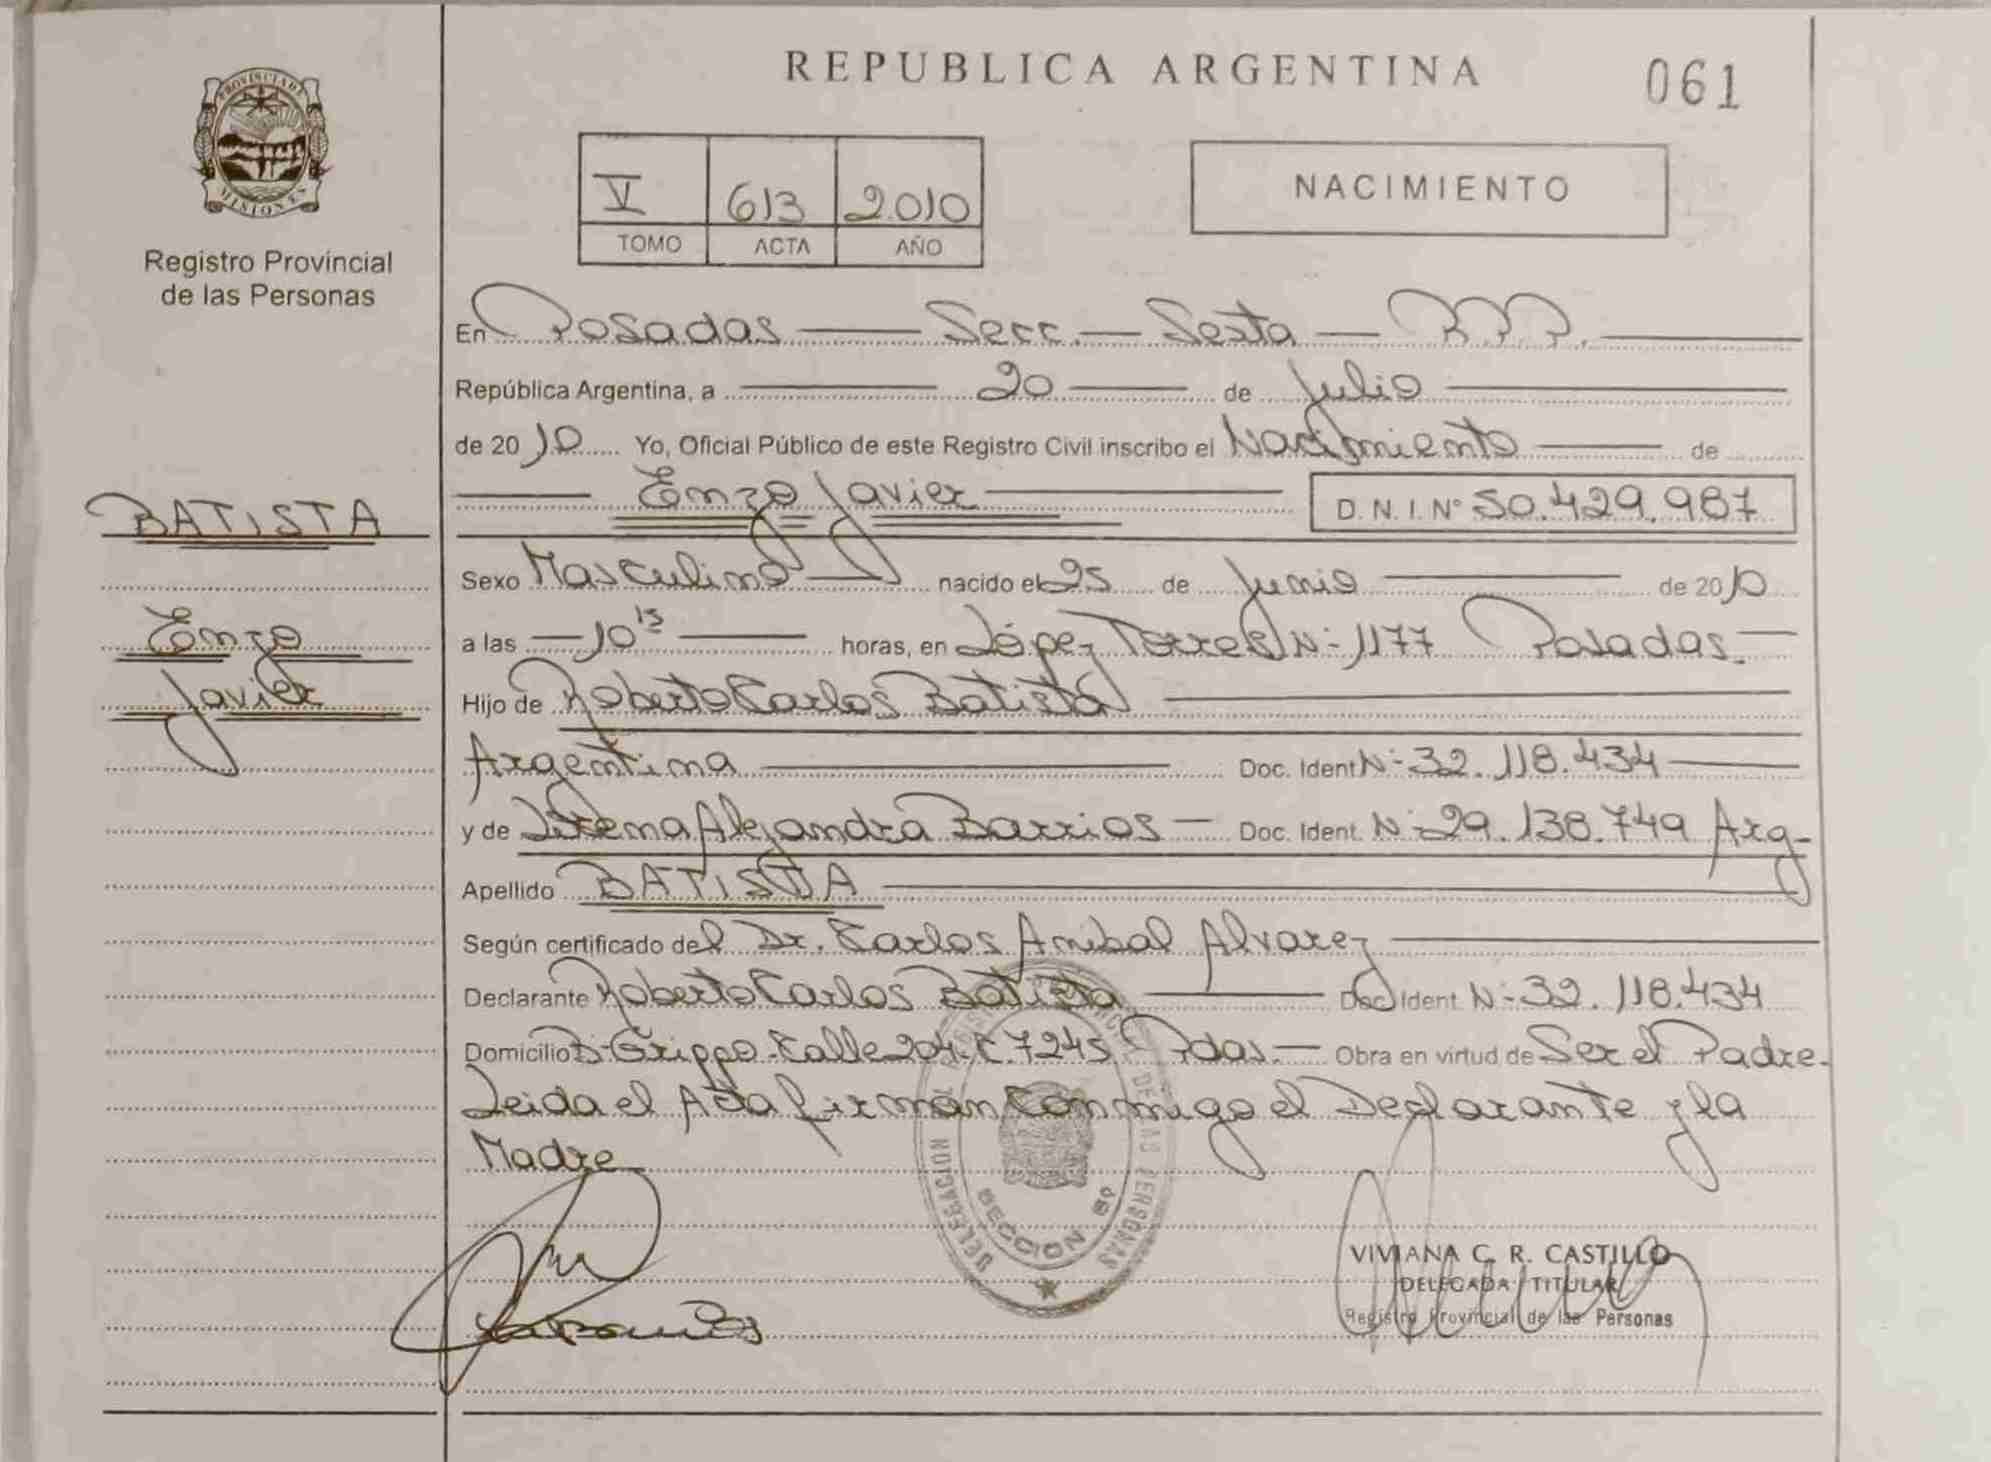 REPUBLICA ARGENTINA
061
PROVINCIA DE
MISIONES
Registro Provincial
de las Personas
V 613 2010
TOMO ACTA AÑO
NACIMIENTO
En Posadas — Secc. — Sexta — R.P.P. —
República Argentina, a — 20 — de Julio —
de 2010 Yo, Oficial Público de este Registro Civil inscribo el Nacimiento — de
— Enzo Javier — D.N.I. Nº 50.429.987
BATISTA
Enzo
Javier
Sexo Masculino — nacido el 25 de Junio — de 2010
a las — 10 15 — horas, en López Torres Nº 1177 Posadas. —
Hijo de Roberto Carlos Batista —
Argentina — Doc. Ident Nº 32.118.434 —
y de Alejandra Barrios — Doc. Ident. Nº 29.138.749 Arg-
Apellido BATISTA —
Según certificado del Dr. Carlos Anibal Alvarez —
Declarante Roberto Carlos Batista — Doc Ident Nº 32.118.434
Domicilio Bº Grippo - Calle 204 - C. 7245 Pdas. — Obra en virtud de Ser el Padre.
Leida el Acta firman Conmigo el Declarante y la
Madre
DELEGACION DE LAS PERSONAS
SECCION 6º
VIVIANA C. R. CASTILLO
DELEGADA TITULAR
Registro Provincial de las Personas